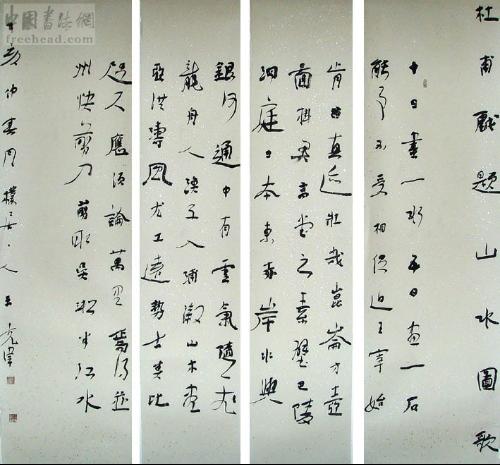 中国书法网
freehead.com
杜甫戲題山水圖歌
十日畫一水五日畫一石
能事不受相促迫王宰始
肯留真迹壯哉崑崙方壺
圖掛君高堂之素壁巴陵
洞庭日本東赤岸水與
銀河通中有雲氣隨飛
龍舟人漁子入浦漵山木盡
亞洪濤風尤工遠勢古莫比
咫尺應須論萬里焉得並
州快剪刀剪取吳淞半江水
丁亥仲春